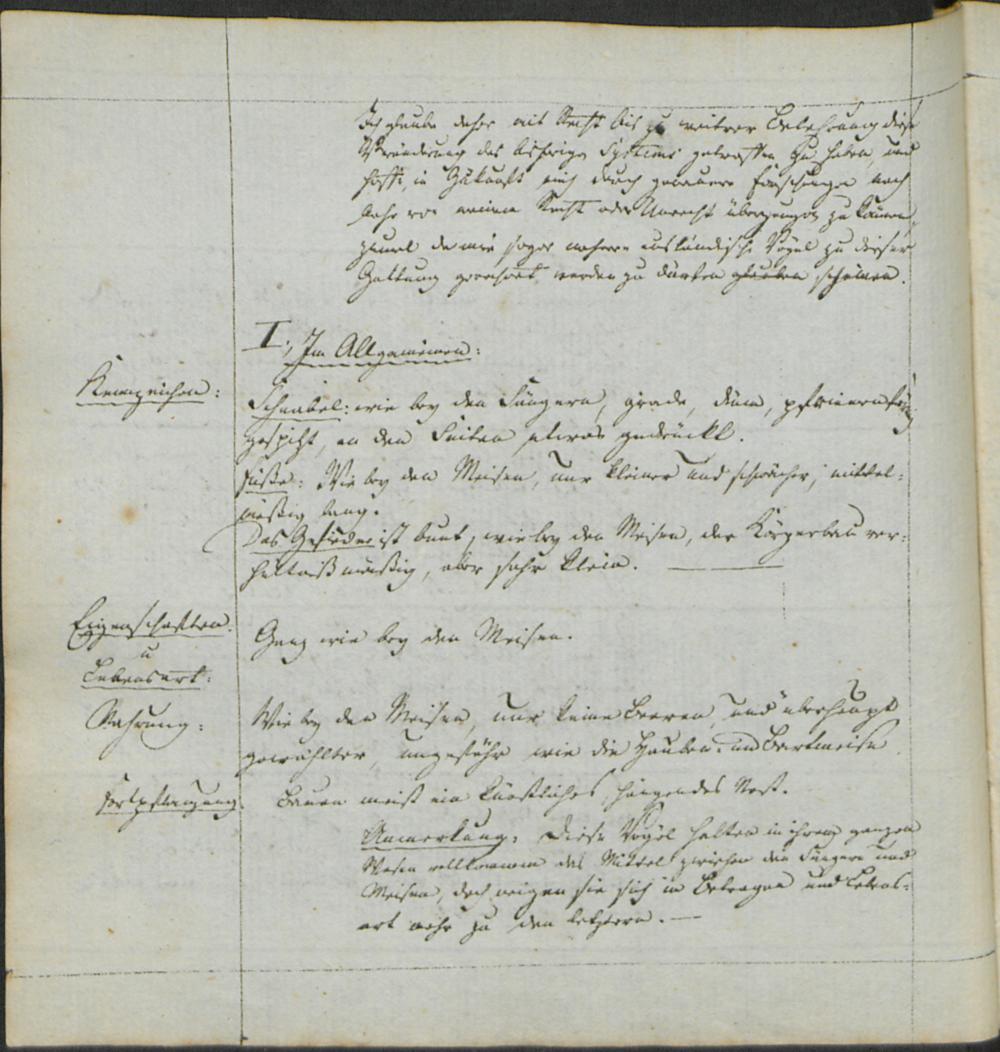 Ich glaube daher mit Recht bis zu weitrer Belehrung diese
Veränderung des bisherigen Systems getroffen zu haben, und
hoffe, in Zukunft mich durch genauere Forschungen noch
mehr von meinem Recht oder Unrecht überzeugen zu können,
zumal da mir sogar mehrere ausländische Vögel zu dieser
Gattung gerechnet werden zu dürfen glauben scheinen.
I., Im Allgemeinen:
Kennzeichen:
Schnabel: wie bey den Sängern, grade, dünn, pfriemenförmig
gespizt, an den Seiten etwas gedrückt.
Füße: Wie bey den Meisen, nur kleiner und schwächer, mittel-
mäßig lang.
Das Gefieder ist bunt, wie bey den Meisen, der Körperbau ver-
hältnißmäßig, aber sehr klein.
Eigenschaften
u
Lebensart:
Ganz wie bey den Meisen.
Nahrung:
Wie bey den Meisen, nur keine Beeren, und überhaupt
gewählter, ungefähr wie die Hauben- und Bartmeise
Fortpflanzung:
Bauen meist ein künstliches, hängendes Nest.
Anmerkung: Diese Vögel halten in ihrem ganzen
Wesen vollkommen das Mittel zwischen den Sängern und
Meisen, doch neigen sie sich im Betragen und Lebens-
art mehr zu den letztern.